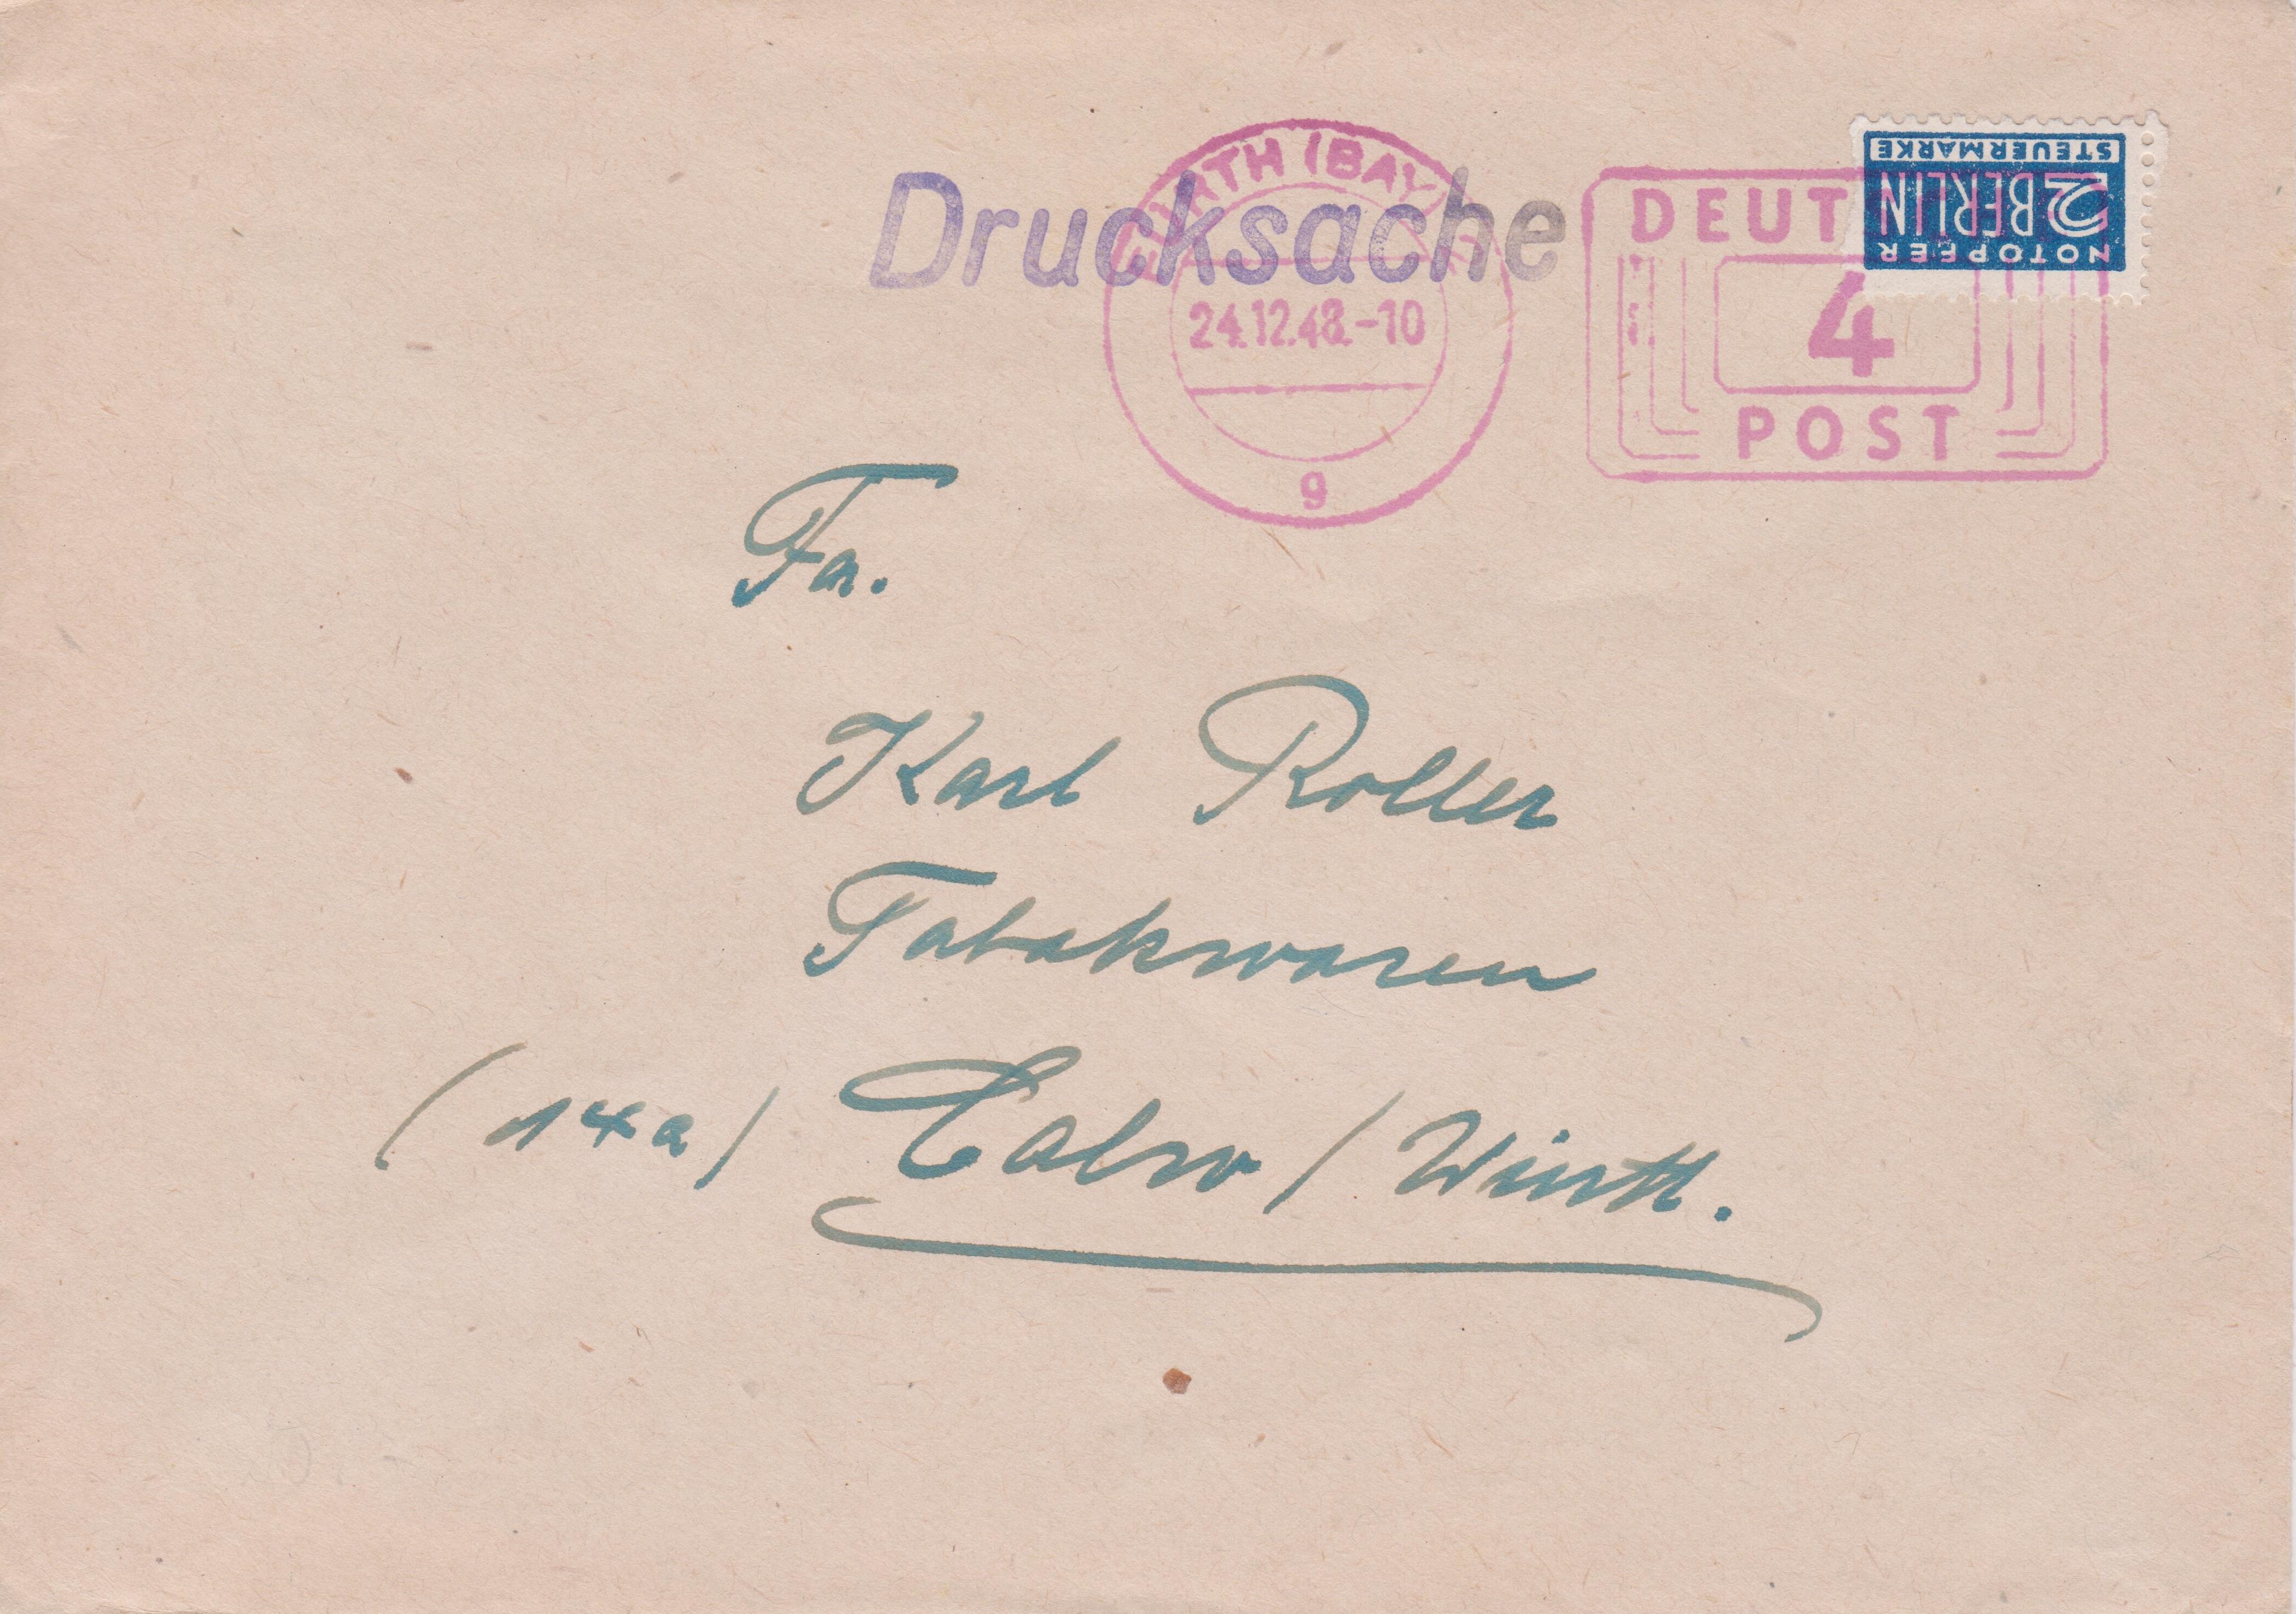 Drucksache
FÜRTH (BAY
24.12.48.-10
g
DEUT
4
POST
NOTOPFER
2 BERLIN
STEUERMARKE
Fa.
Karl Roller
Tabakwaren
(14a) Calw / Württ.